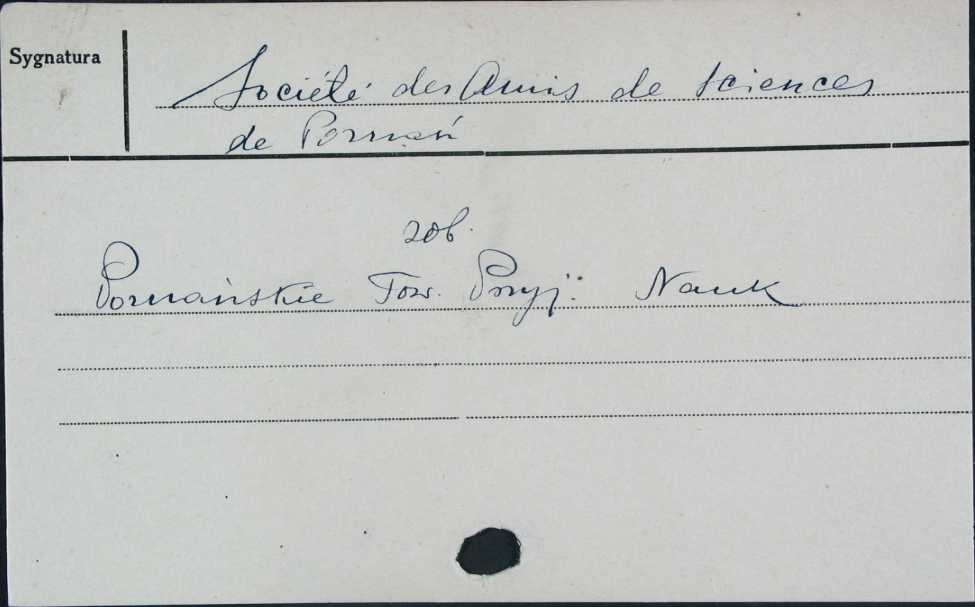 Sygnatura
Société des Amis de Sciences
de Poznań
zob.
Poznańskie Tow. Przyj. Nauk